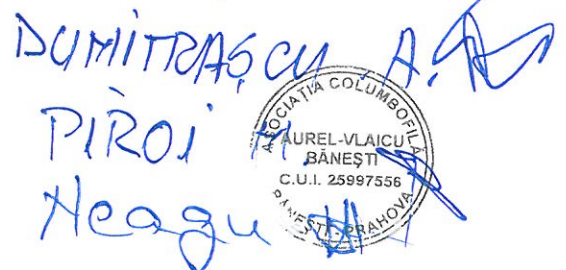 DUMITRAȘCU A.
PIROI M.
Neagu
ASOCIAȚIA COLUMBOFILĂ
AUREL-VLAICU
BĂNEȘTI
C.U.I. 25997556
BĂNEȘTI-PRAHOVA